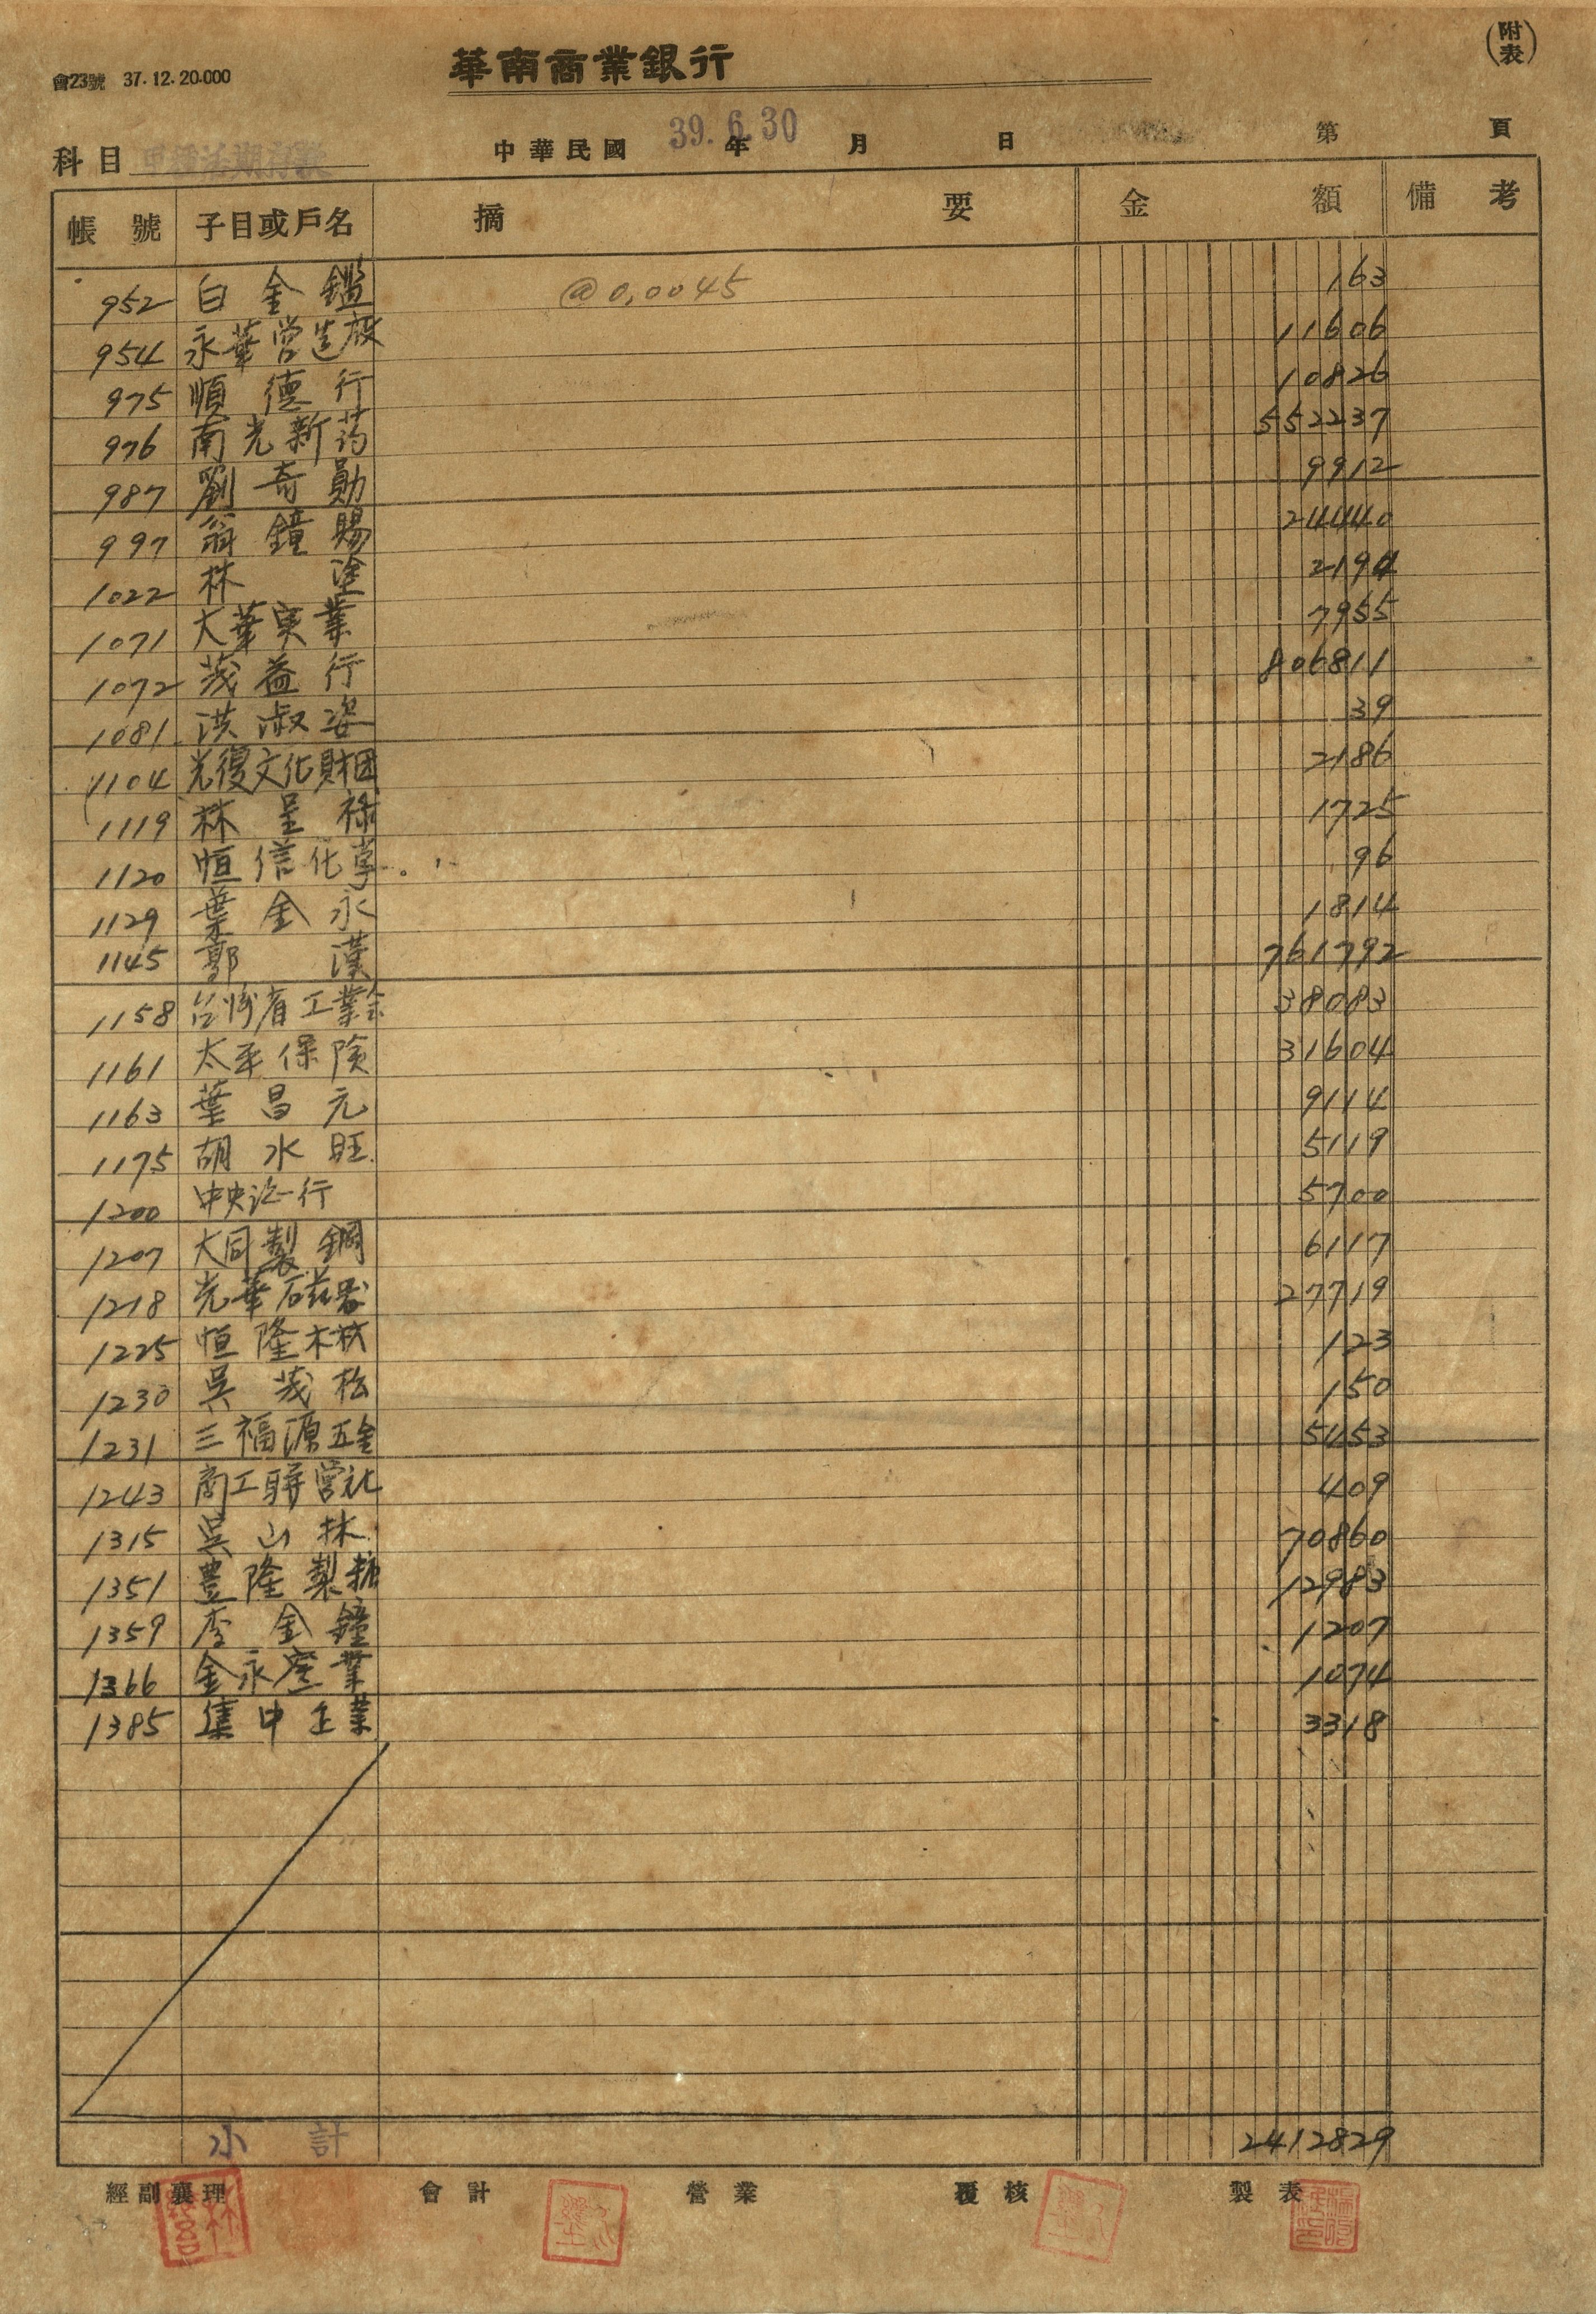 (附表)
會23號 37.12.20.000
華南商業銀行
科目 甲種活期存款 中華民國 39.6.30 年 月 日 第 頁
帳號 子目或戶名 摘要 金額 備考
952 白金鑑 @0,0045 163
954 永華營造廠 11606
975 順德行 10826
976 南光新葯 552237
987 劉奇勛 9912
997 翁鐘賜 24440
1022 林塗 2194
1071 大華実業 7955
1072 茂益行 806811
1081 洪淑姿 39
1104 光復文化財団 2186
1119 林呈祿 1725
1120 恒信化学 96
1129 葉金永 1814
1145 郭漢 761792
1158 台湾省工業会 38083
1161 太平保険 31604
1163 葉昌元 9114
1175 胡水旺 5119
1200 中央行 5700
1207 大同製鋼 6117
1218 光華磁器 27719
1225 恒隆木材 123
1230 吳茂松 150
1231 三福源五金 5453
1243 商工聯營社 409
1315 吳山林 70860
1351 豊隆製糖 12983
1359 李金鐘 1207
1366 金永産業 1074
1385 集中企業 3318
小計 2412829
經副襄理 會計 營業 覆核 製表